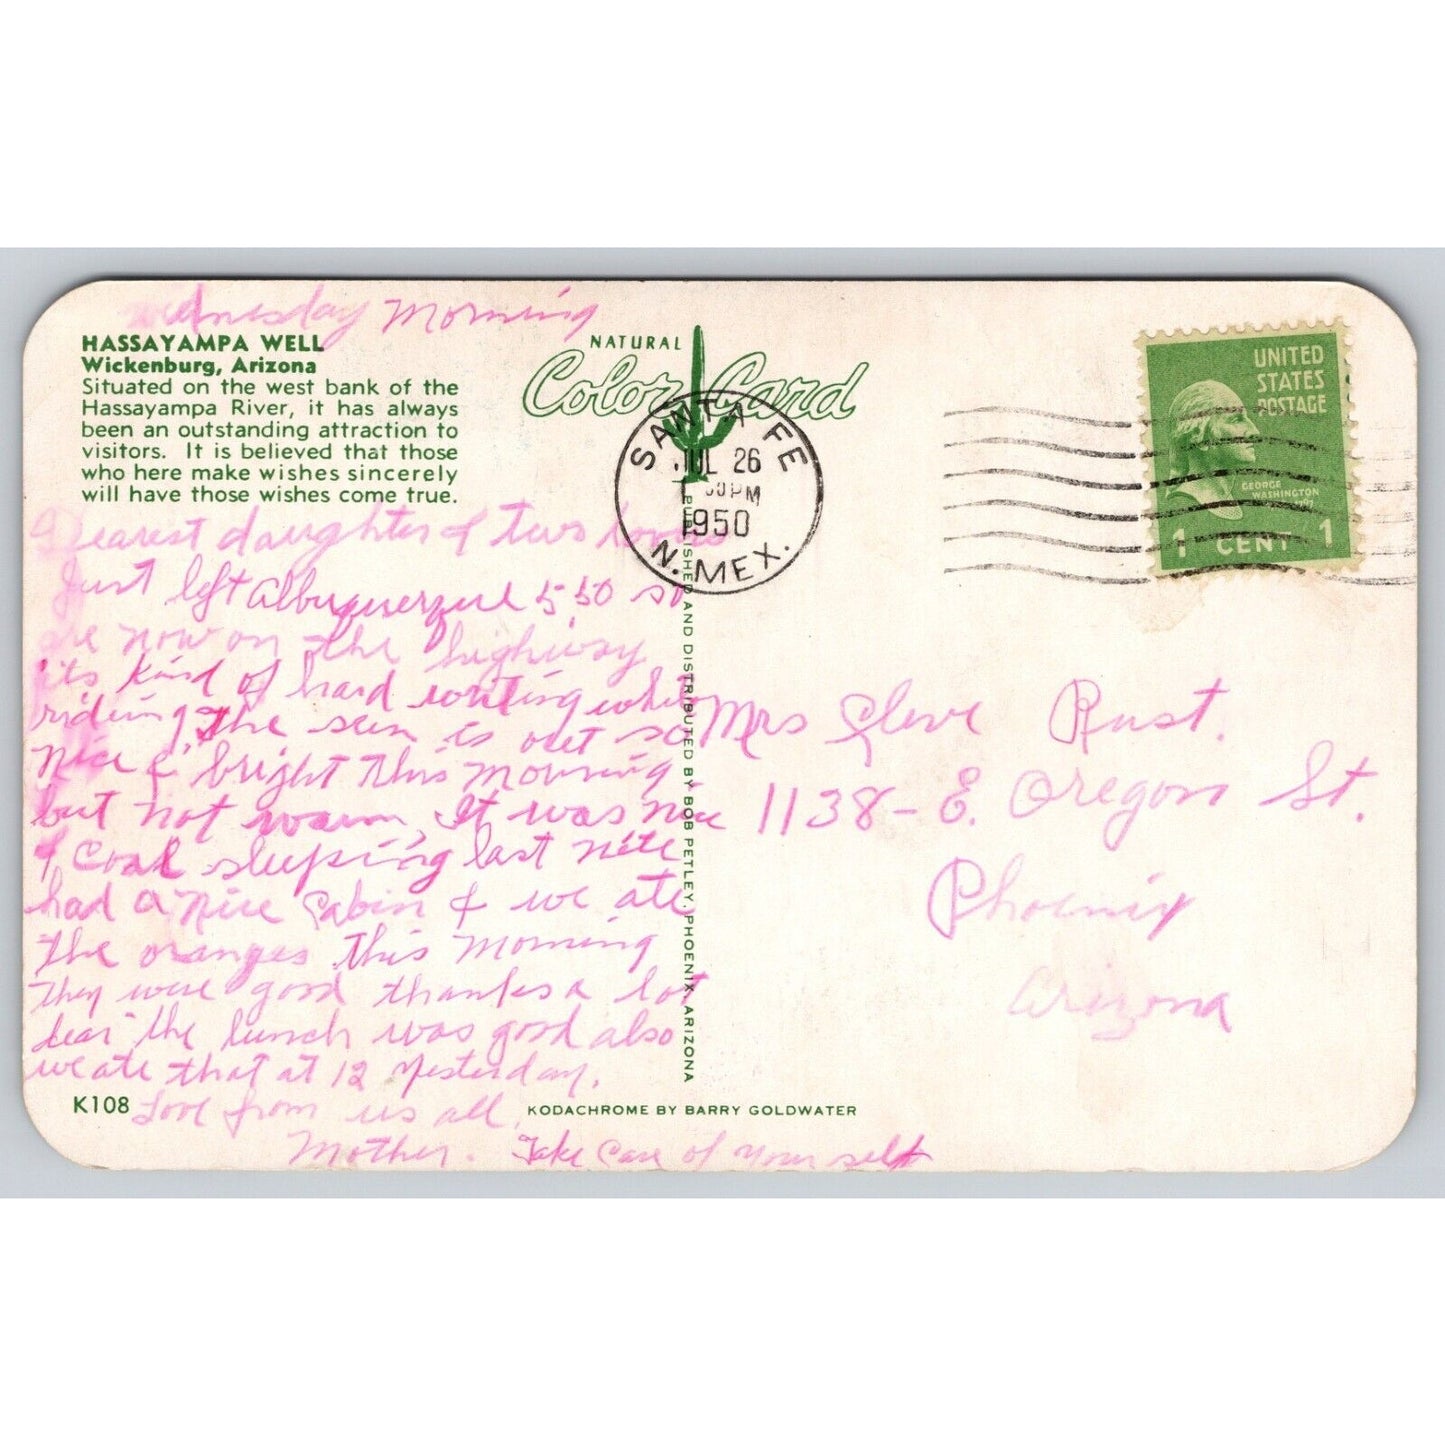 Wednesday Morning
HASSAYAMPA WELL
Wickenburg, Arizona
Situated on the west bank of the
Hassayampa River, it has always
been an outstanding attraction to
visitors. It is believed that those
who here make wishes sincerely
will have those wishes come true.
Dearest daughter & two
Just left Albuquerque 5 50 so
are now on the highway
its kind of hard writing while
riding, the sun is out so
nice & bright this morning
but not warm, It was nice
& cool sleeping last nite
had a nice cabin & we ate
the oranges this morning
They were good thanks a lot
dear the lunch was good also
we ate that at 12 yesterday.
Love from us all
Mother. Take Care of your self
K108
NATURAL
Color Card
SANTA FE
JUL 26
30 PM
1950
N. MEX.
PUBLISHED AND DISTRIBUTED BY BOB PETLEY, PHOENIX, ARIZONA
KODACHROME BY BARRY GOLDWATER
UNITED
STATES
POSTAGE
GEORGE
WASHINGTON
1 CENT 1
Mrs Cleve Rust.
1138 - E. Oregon St.
Phoenix
Arizona